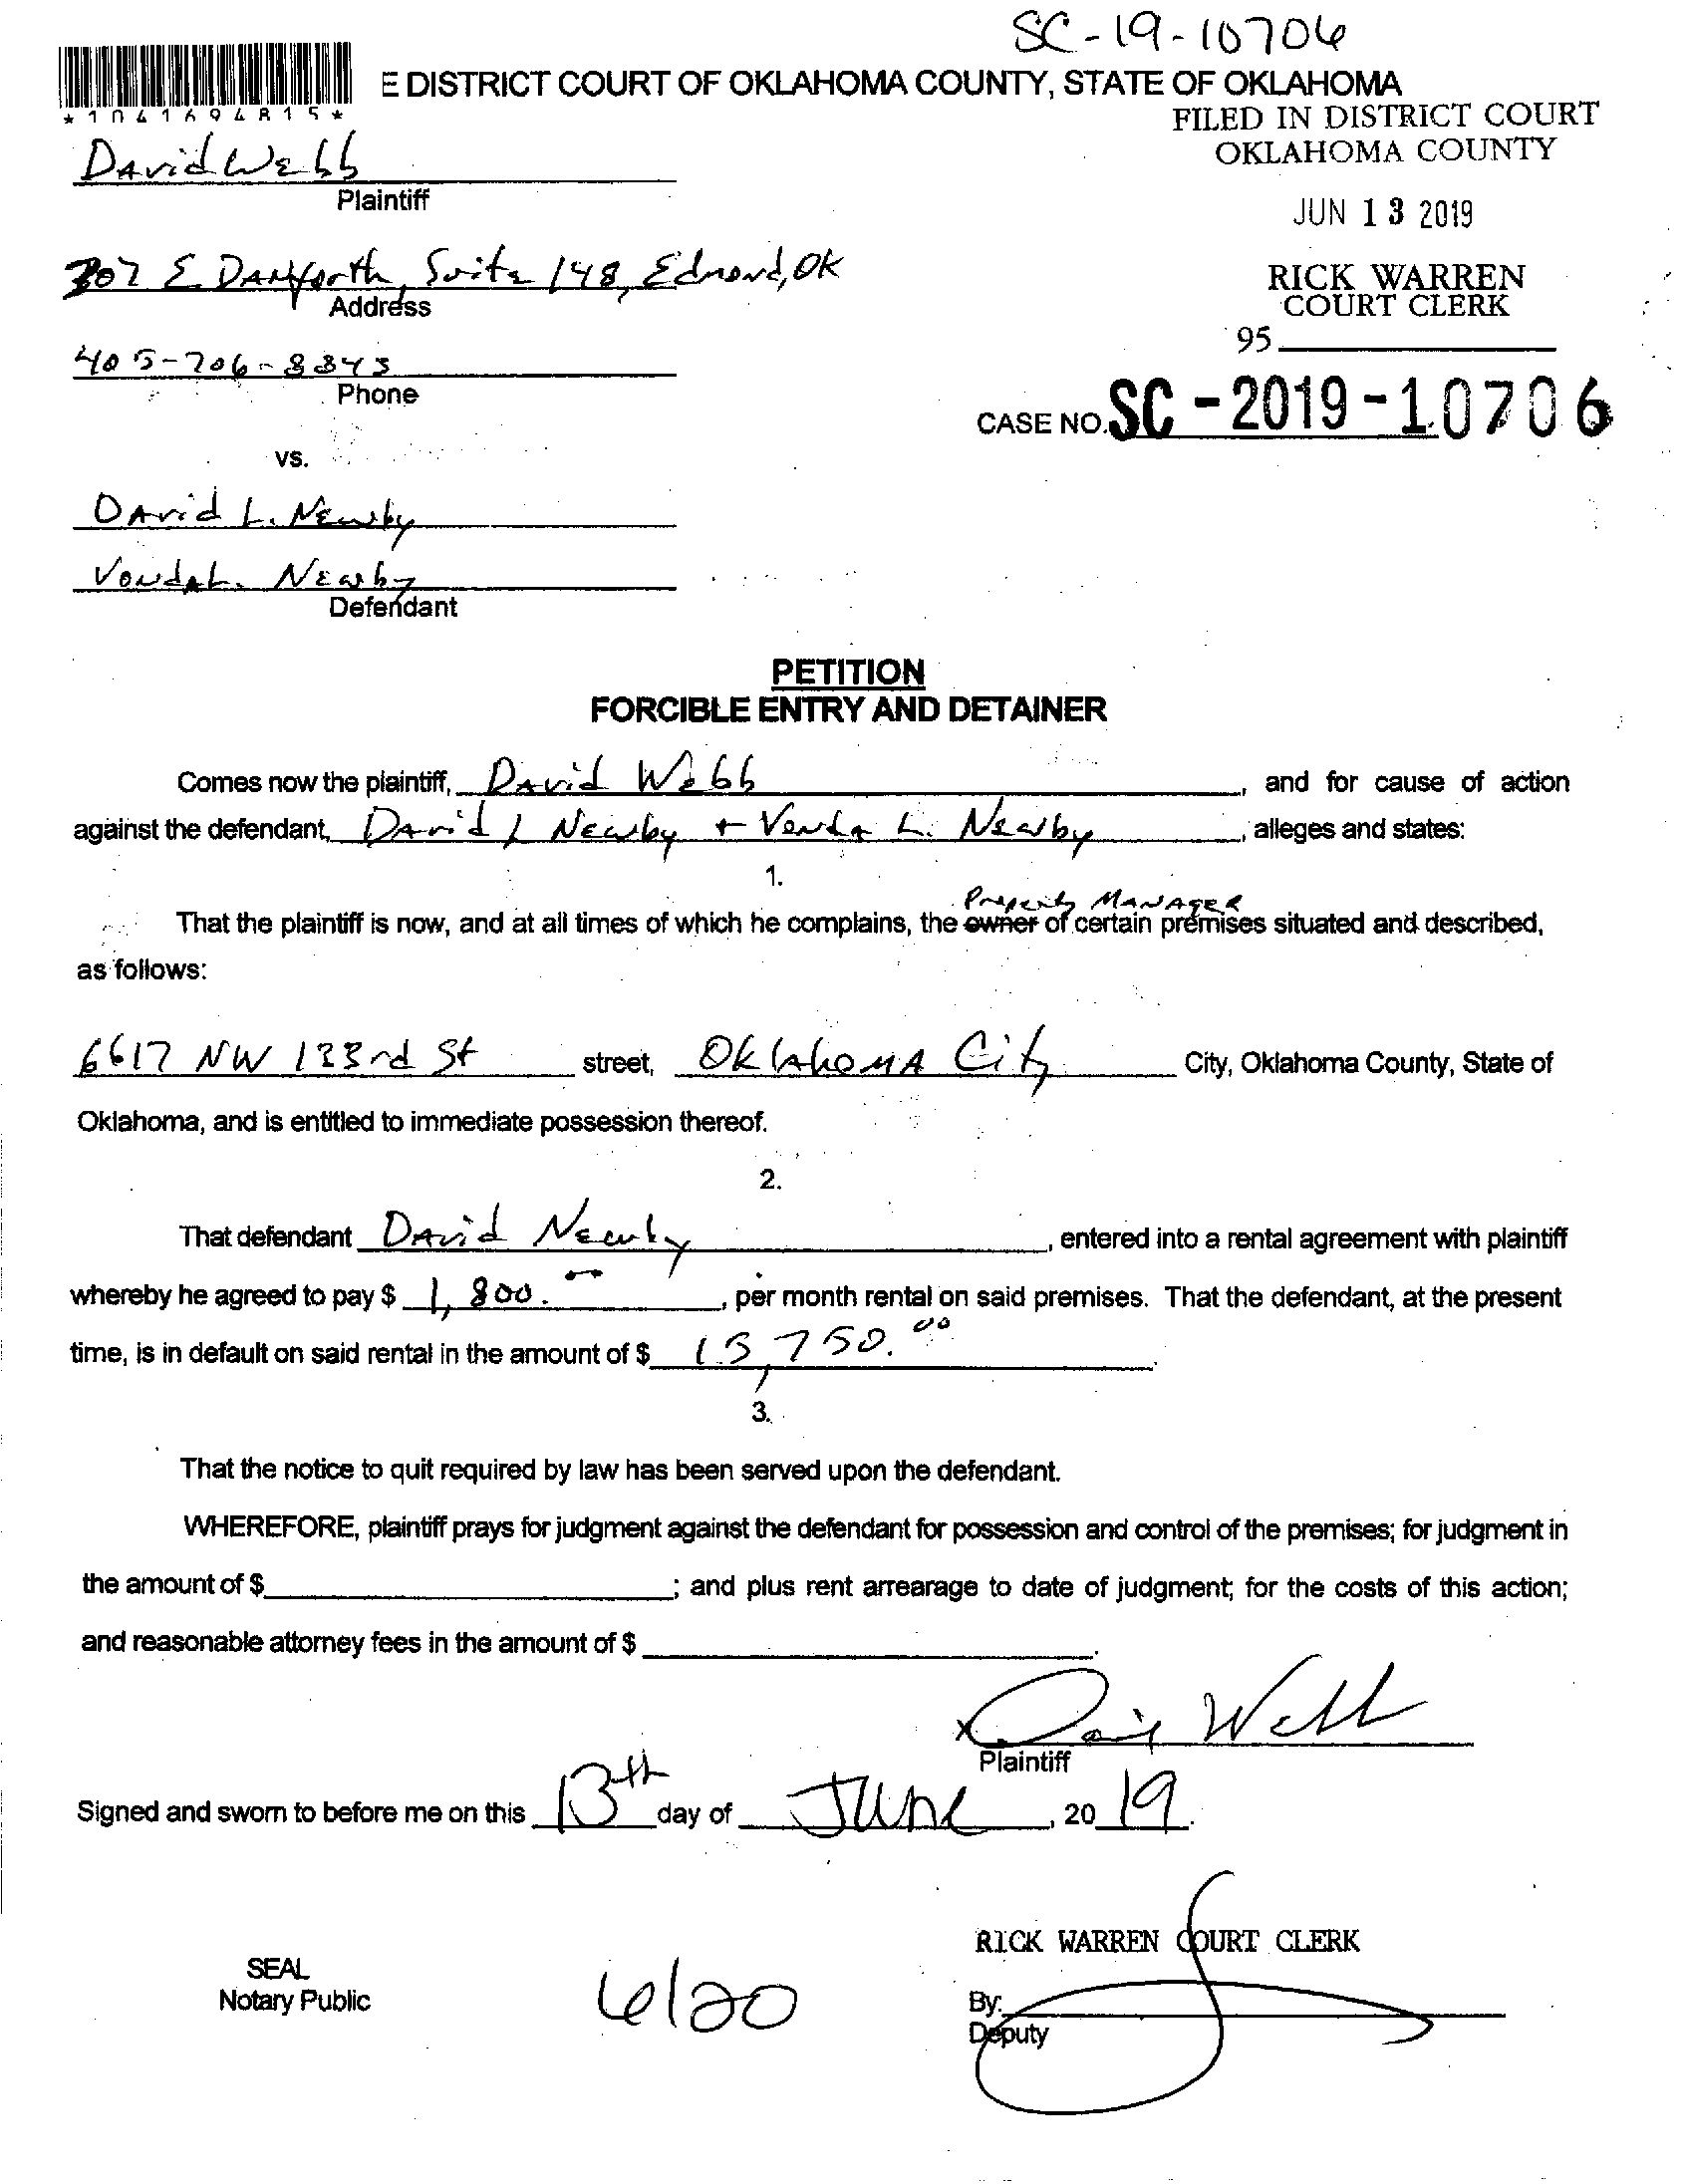 SC-19-10706
E DISTRICT COURT OF OKLAHOMA COUNTY, STATE OF OKLAHOMA
*1041694815*
FILED IN DISTRICT COURT
OKLAHOMA COUNTY
David Webb
Plaintiff
JUN 13 2019
307 E Danforth, Suite 148, Edmond, OK
Address
RICK WARREN
COURT CLERK
95
405-706-8343
Phone
CASE NO. SC-2019-10706
vs.
David L. Newby
Vonda L. Newby
Defendant
PETITION
FORCIBLE ENTRY AND DETAINER
Comes now the plaintiff, David Webb, and for cause of action
against the defendant, David L Newby + Vonda L. Newby, alleges and states:
1.
Property Manager
That the plaintiff is now, and at all times of which he complains, the owner of certain premises situated and described,
as follows:
6617 NW 133rd St street, Oklahoma City City, Oklahoma County, State of
Oklahoma, and is entitled to immediate possession thereof.
2.
That defendant David Newby, entered into a rental agreement with plaintiff
whereby he agreed to pay $ 1,800.00, per month rental on said premises. That the defendant, at the present
time, is in default on said rental in the amount of $ 15,750.00.
3.
That the notice to quit required by law has been served upon the defendant.
WHEREFORE, plaintiff prays for judgment against the defendant for possession and control of the premises; for judgment in
the amount of $ ; and plus rent arrearage to date of judgment; for the costs of this action;
and reasonable attorney fees in the amount of $ .
x David Webb
Plaintiff
Signed and sworn to before me on this 13th day of June, 2019.
RICK WARREN COURT CLERK
SEAL
Notary Public
6/20
By:
Deputy